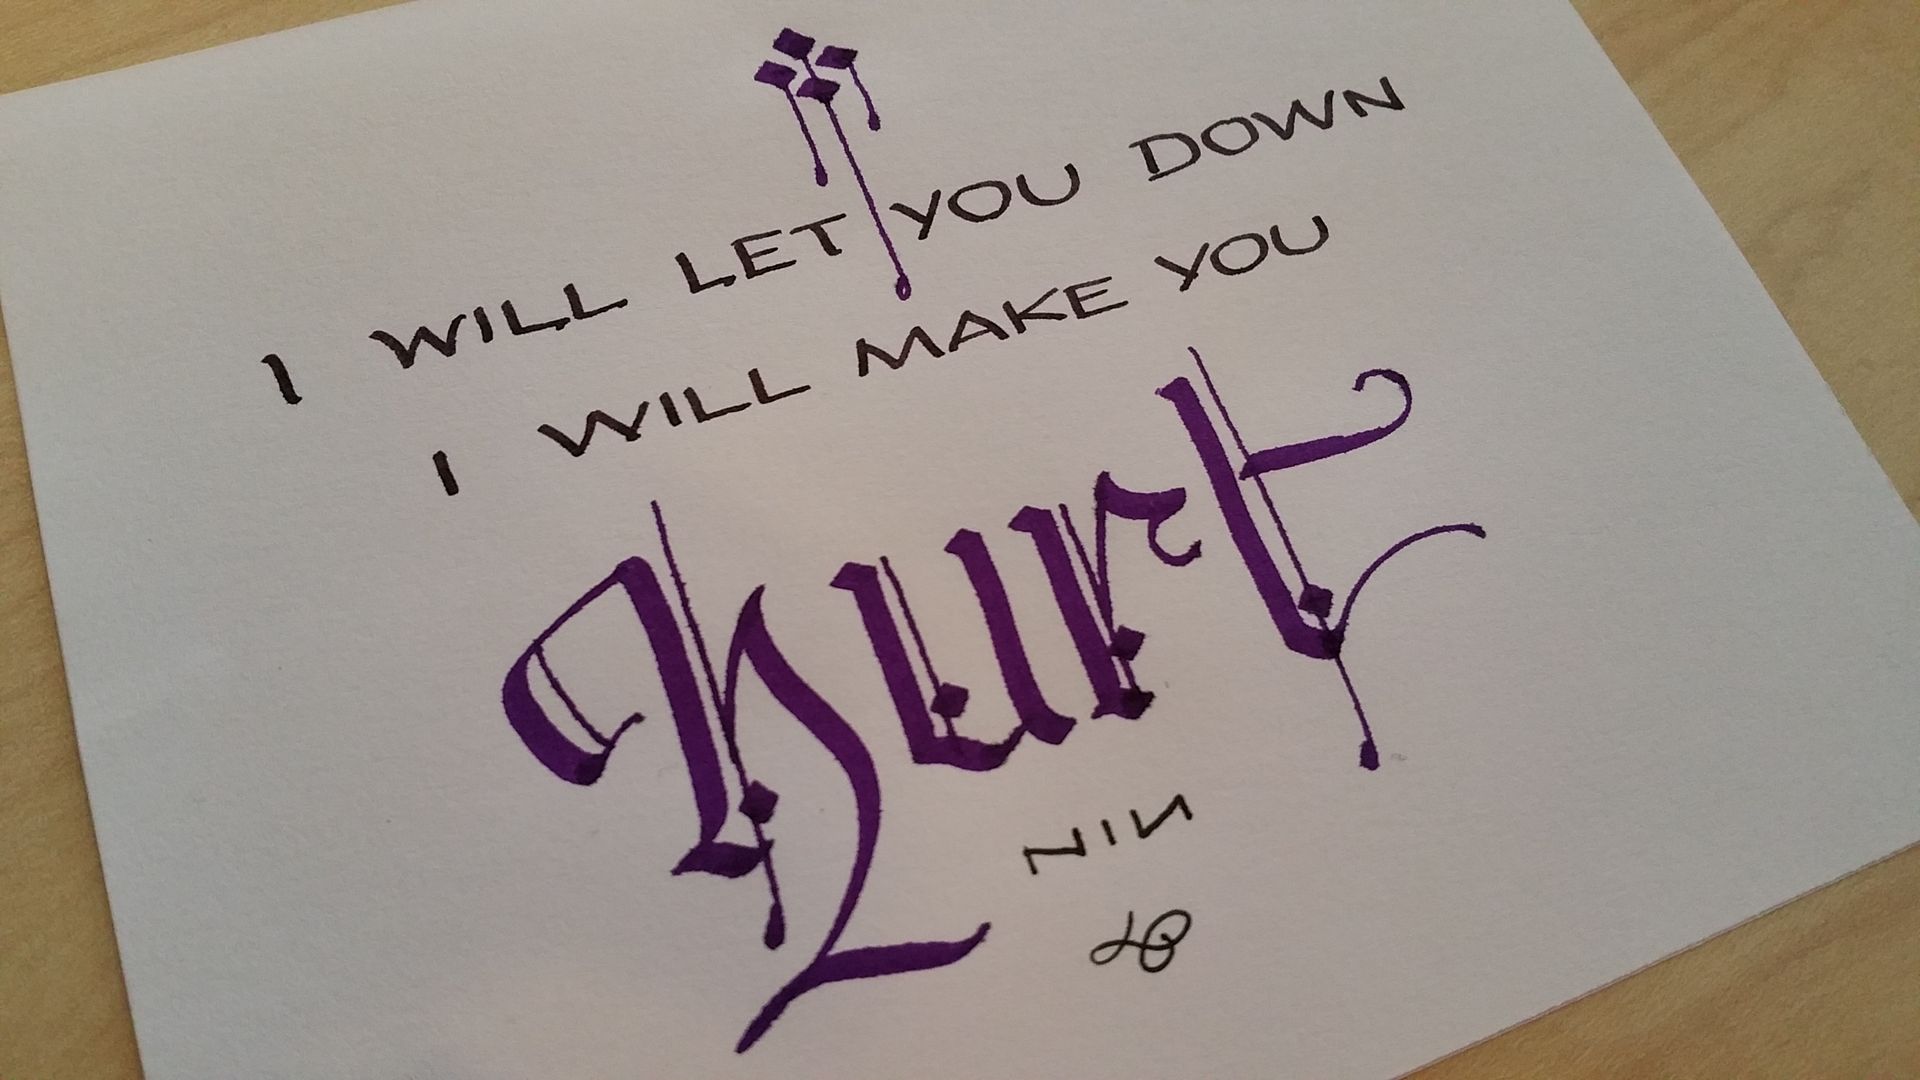 I WILL LET YOU DOWN
I WILL MAKE YOU
hurt
NIИ